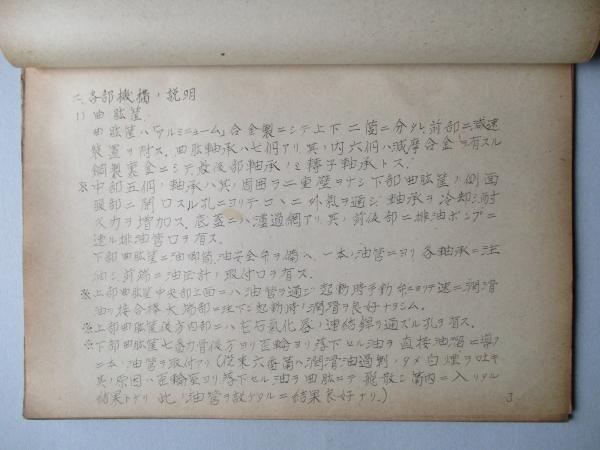 二、各部機構ノ説明
1) 曲肱筐
曲肱筐ハ「アルミニューム」合金製ニシテ上下二箇ニ分タレ前部ニ減速
装置ヲ附ス. 曲肱軸承ハ七個アリ其ノ内六個ハ減摩合金ヲ有スル
鋼製裏金ニシテ最後部軸承ノミ轉子軸承トス.
※中部五個ノ軸承ハ其ノ周囲ヲ二重壁ヲナシ下部曲肱筐ノ側面
腹部ニ開口スル孔ニヨリテコヽニ外氣ヲ通ジ軸承ヲ冷却シ耐
久力ヲ増加ス. 底蓋ニハ濾過網アリ其ノ前後部ニ排油ポンプニ
連ル排油管口ヲ有ス.
下部曲肱筐ニ油唧筒油安全弁ヲ備ヘ一本ノ油管ニヨリ各軸承ニ注
油シ前端ニ油圧計ノ取付口ヲ有ス.
※上部曲肱筐中央部上面ニハ油管ヲ通ジ起動時手動弁ニヨリテ速ニ潤滑
油ヲ接合棒大端部ニ注下シ起動時ノ潤滑ヲ良好ナラシム.
※上部曲肱筐後方内部ニハ左右氣化器ノ連結桿ヲ通ズル孔ヲ有ス.
※下部曲肱筐七番力骨後方ヨリ歪輪室ヨリ落下セル油ヲ直接油溜ニ導ク
二本ノ油管ヲ取付アリ(従来六番筒ハ潤滑油過剰ノタメ白煙ヲ吐キ
其ノ原因ハ歪輪室ヨリ落下セル油ヲ曲肱ニテ飛散シ筒内ニ入リタル
結果トナリ此ノ油管ヲ設ケタルニ結果良好ナリ.)
3